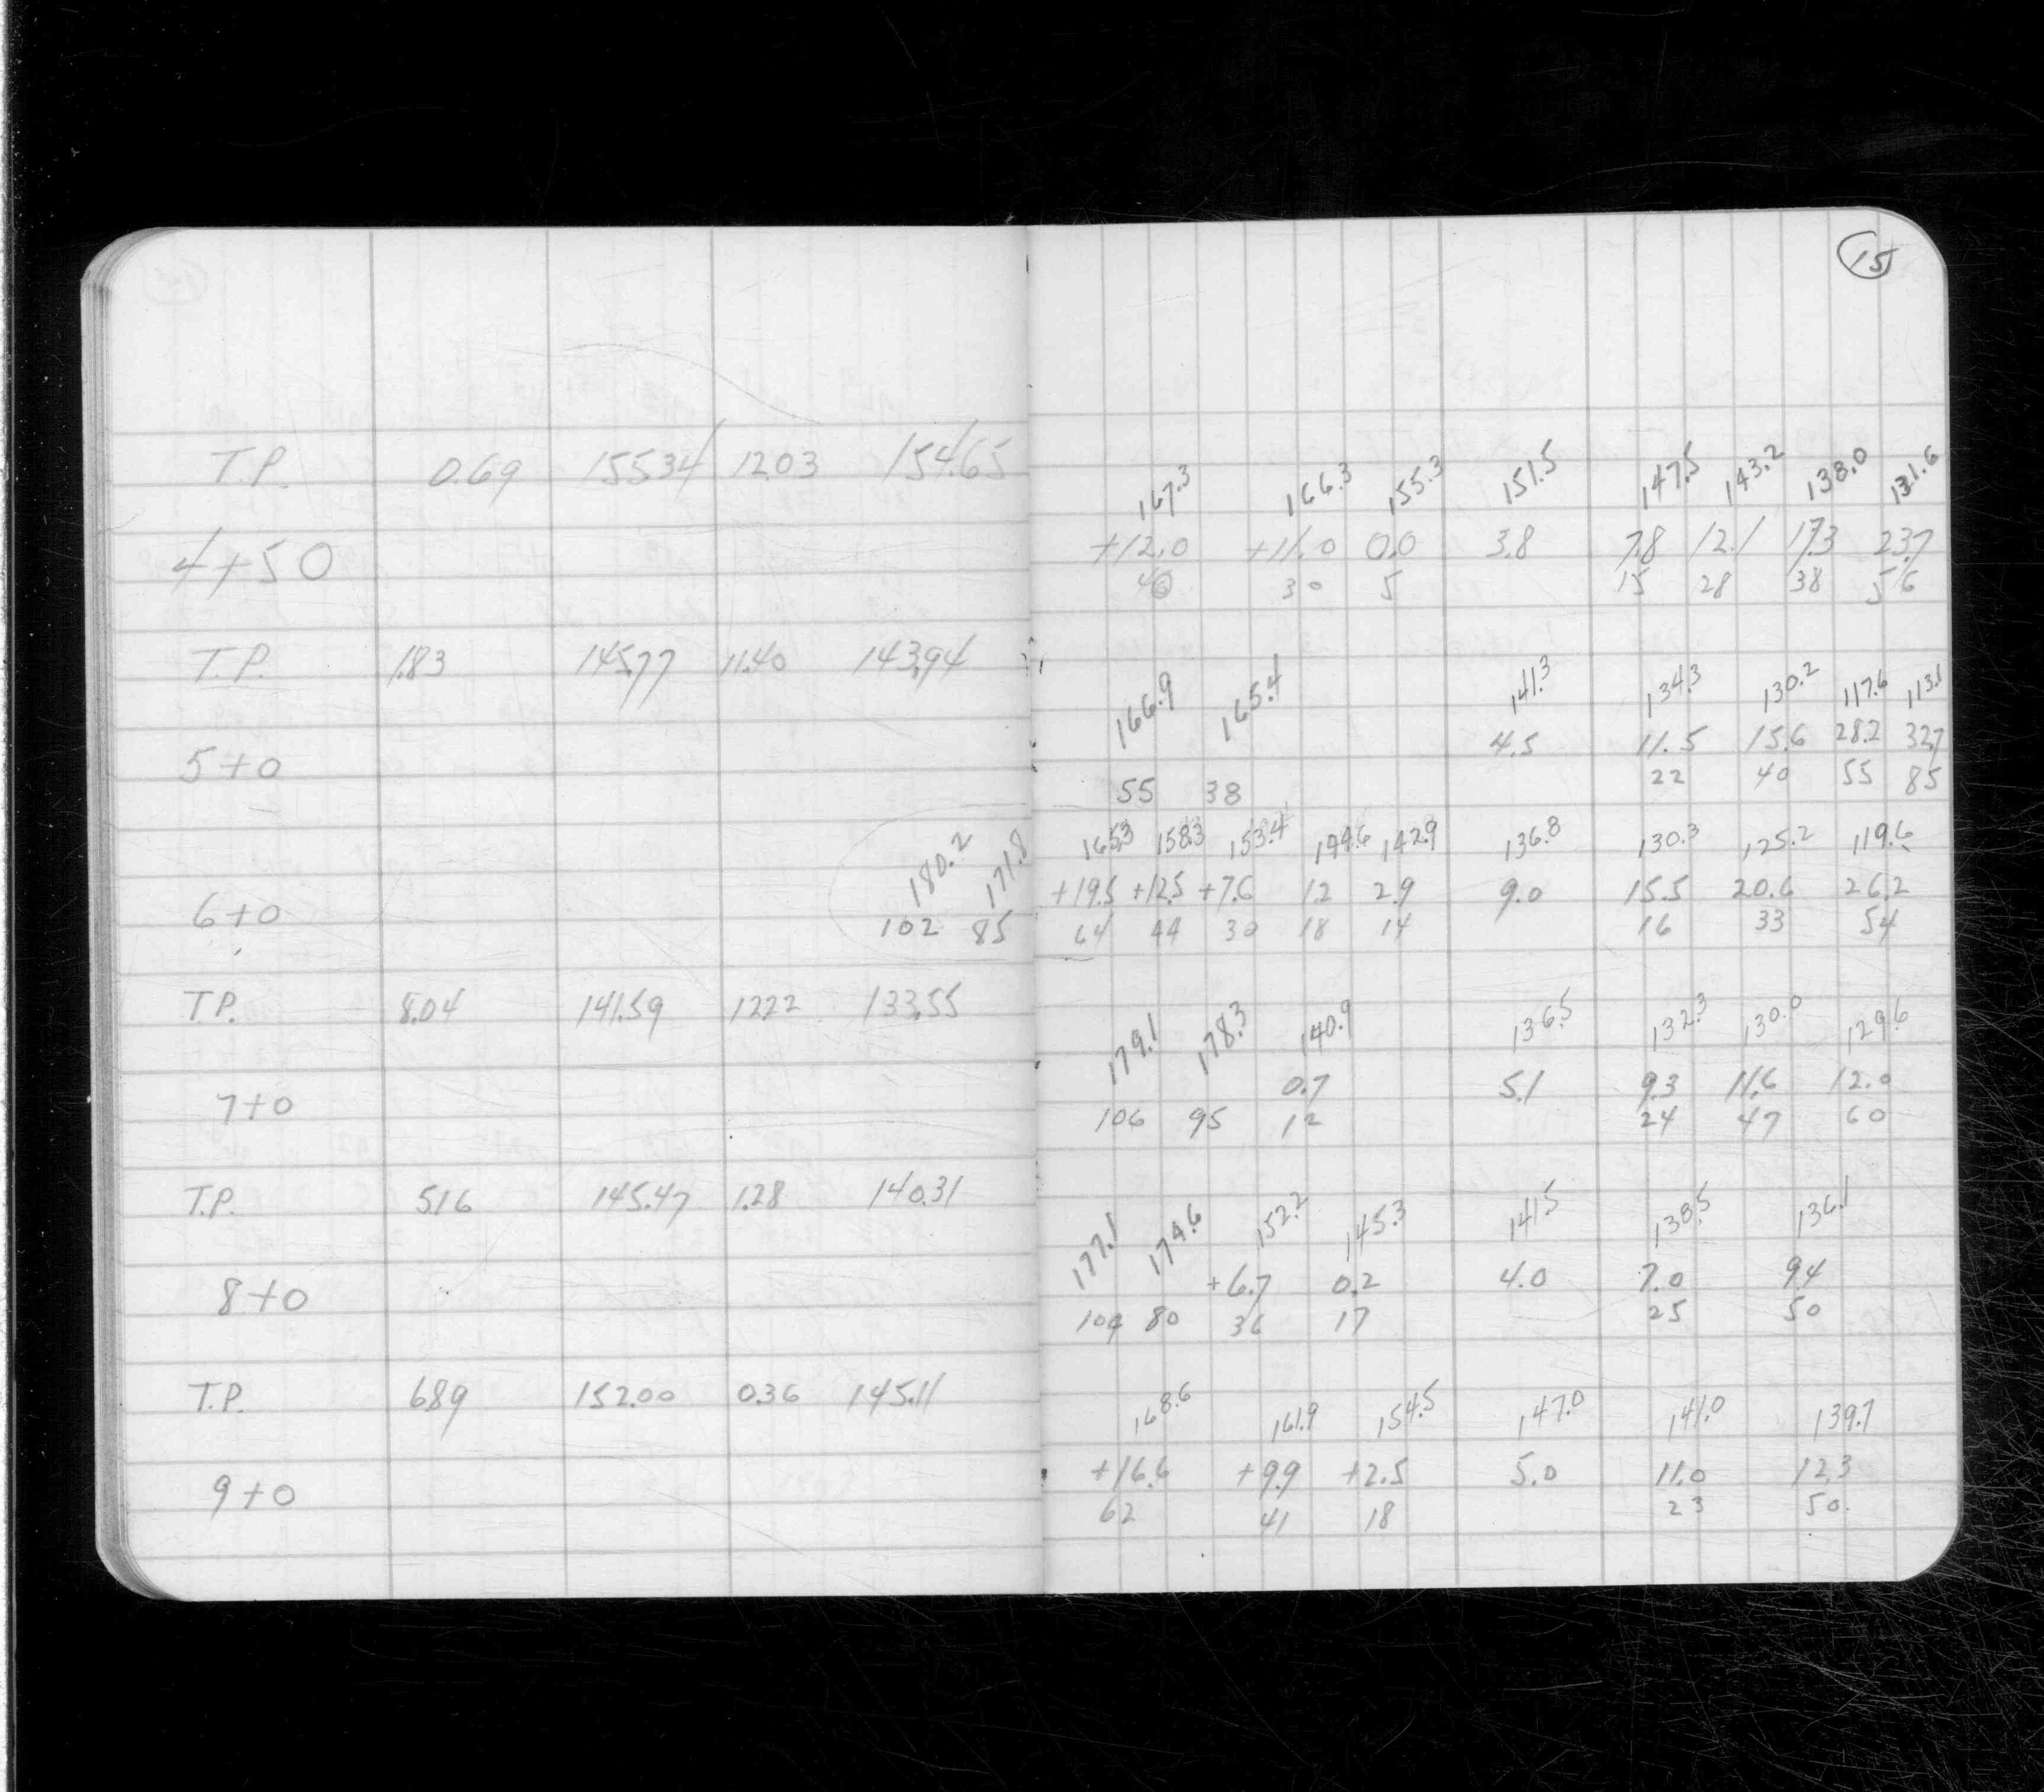 15
T.P. 0.69 155.34 12.03 154.65
167.3 166.3 155.3 151.5 147.5 143.2 138.0 131.6
4+50 +12.0 +11.0 0.0 3.8 7.8 12.1 17.3 23.7
40 30 5 15 28 38 56
T.P. 1.83 145.77 11.40 143.94
166.9 165.4 141.3 134.3 130.2 117.6 113.1
5+0 4.5 11.5 15.6 28.2 32.7
55 38 22 40 55 85
180.2 171.8 165.3 158.3 153.4 144.6 142.9 136.8 130.3 125.2 119.6
6+0 +19.5 +12.5 +7.6 1.2 2.9 9.0 15.5 20.6 26.2
102 85 64 44 30 18 14 16 33 54
T.P. 8.04 141.59 12.22 133.55
179.1 178.3 140.9 136.5 132.3 130.0 129.6
7+0 0.7 5.1 9.3 11.6 12.0
106 95 12 24 47 60
T.P. 5.16 145.47 1.28 140.31
177.1 174.6 152.2 145.3 141.5 138.5 136.1
8+0 +6.7 0.2 4.0 7.0 9.4
104 80 36 17 25 50
T.P. 6.89 152.00 0.36 145.11
168.6 161.9 154.5 147.0 141.0 139.7
9+0 +16.6 +9.9 +2.5 5.0 11.0 12.3
62 41 18 23 50.